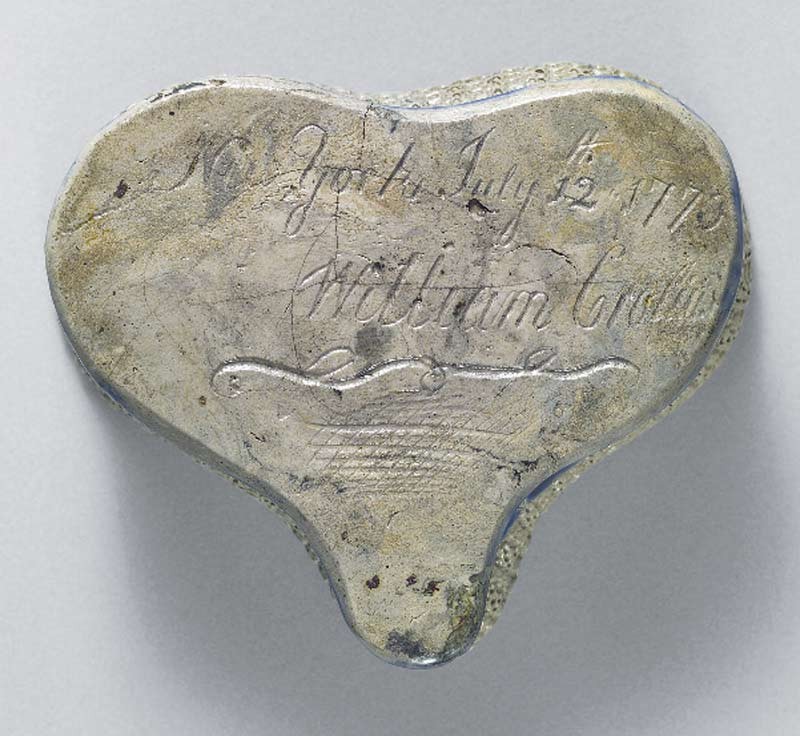 New York, July 12th 1773
William Crolius